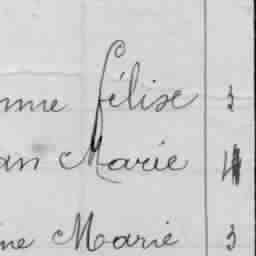 nne félise 3
an Marie 4
ine Marie 3